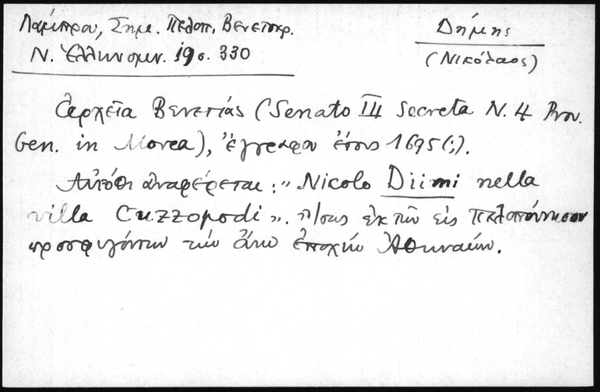 Λάμπρου, Σημ. Πελοπ. Βενετοκρ.
Ν. Ἑλληνομν. 19 σ. 330
Δήμης
(Νικόλαος)
Ἀρχεῖα Βενετίας (Senato III Secreta N. 4 Prov.
Gen. in Morea), ἔγγραφον ἔτους 1695(;).
Αὐτόθι ἀναφέρεται: "Nicolo Diimi nella
villa Cuzzopodi". Ἴσως ἐκ τῶν εἰς Πελοπόννησον
προσφυγόντων τὴν ἄνω ἐποχὴν Ἀθηναίων.